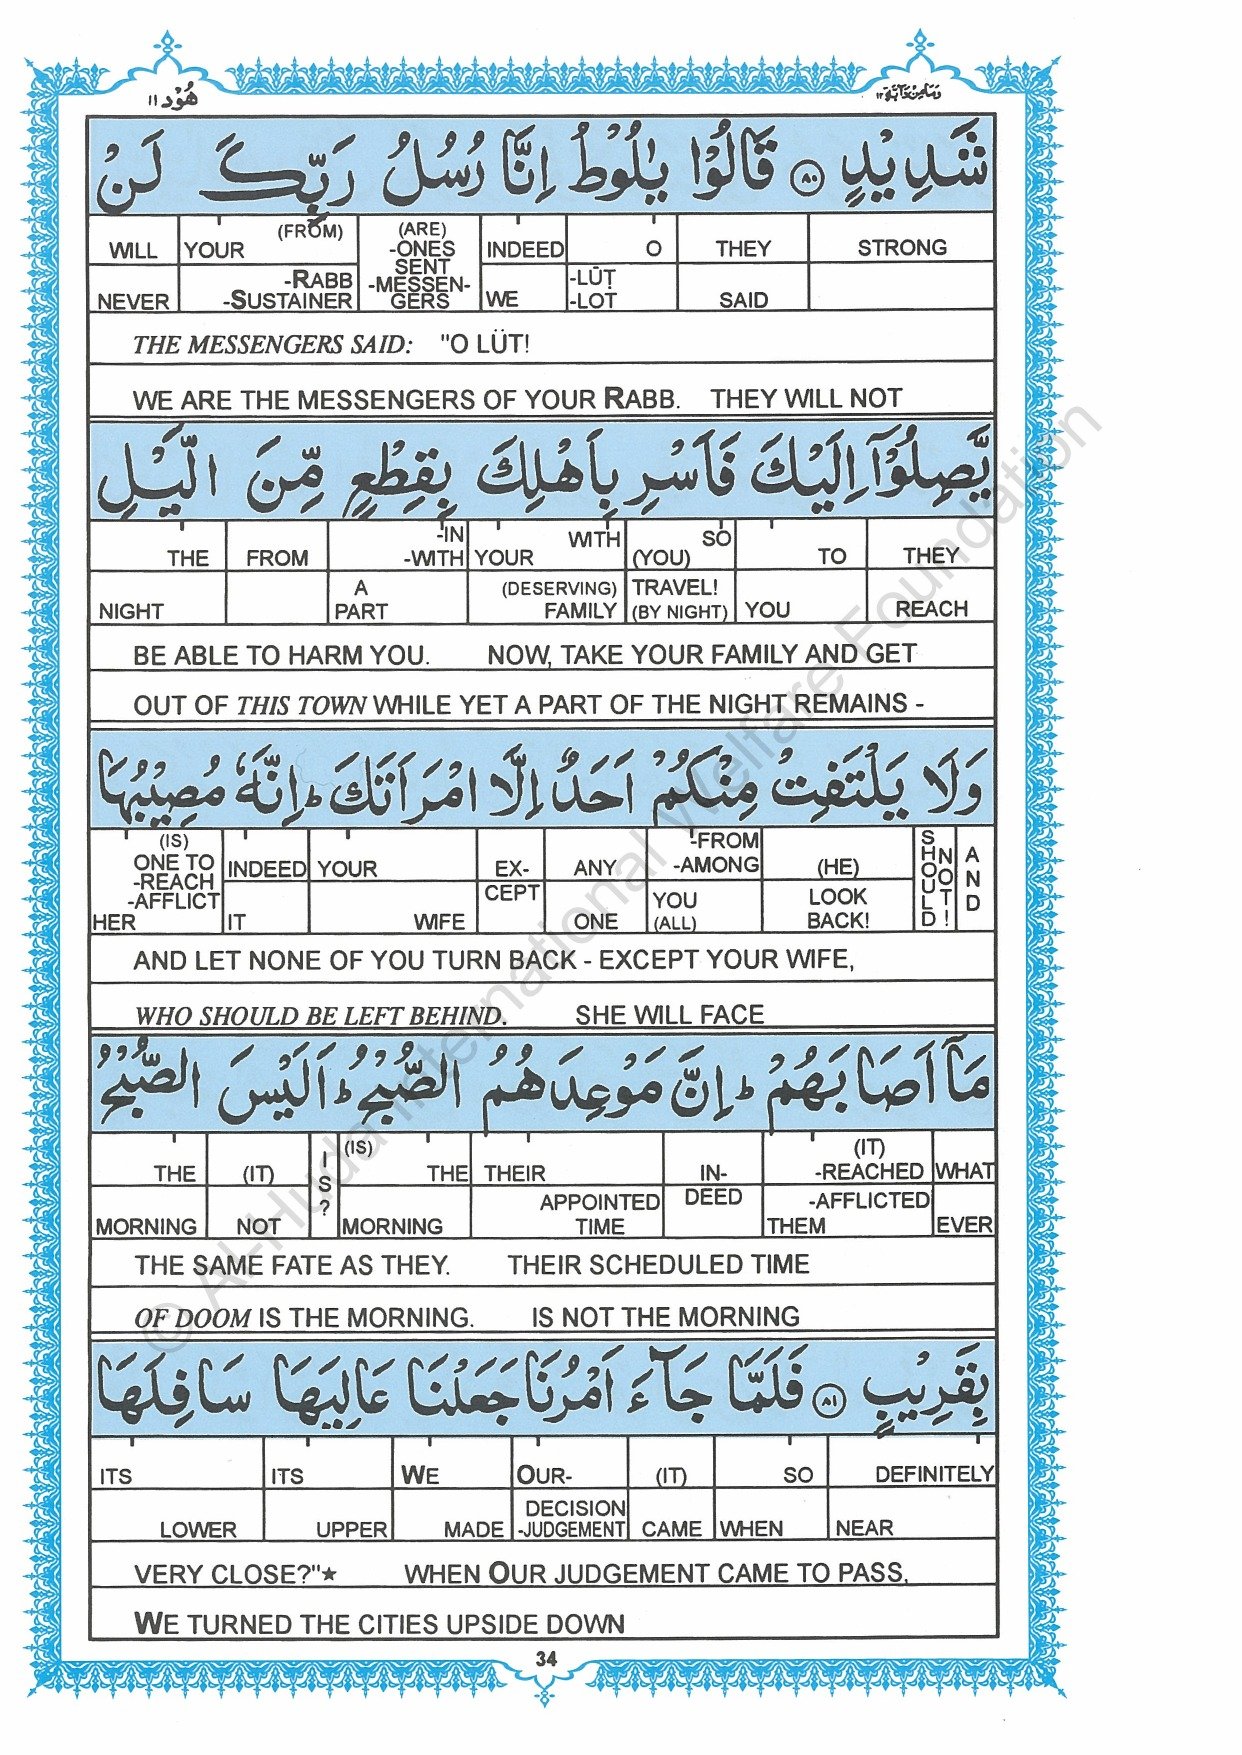 وما من دآبة ١٢
هُوْد ١١
شَدِيْدٍ ۝٨٠ قَالُوْا يٰلُوْطُ اِنَّا رُسُلُ رَبِّكَ لَنْ
WILL YOUR (FROM) (ARE) -ONES SENT -MESSEN-GERS INDEED O THEY STRONG
NEVER -RABB -SUSTAINER WE -LŪṬ -LOT SAID
THE MESSENGERS SAID: "O LÜT!
WE ARE THE MESSENGERS OF YOUR RABB. THEY WILL NOT
يَّصِلُوْٓا اِلَيْكَ فَاَسْرِ بِاَهْلِكَ بِقِطْعٍ مِّنَ الَّيْلِ
THE FROM -IN -WITH YOUR WITH SO (YOU) TO THEY
NIGHT A PART (DESERVING) FAMILY TRAVEL! (BY NIGHT) YOU REACH
BE ABLE TO HARM YOU. NOW, TAKE YOUR FAMILY AND GET
OUT OF THIS TOWN WHILE YET A PART OF THE NIGHT REMAINS -
وَلَا يَلْتَفِتْ مِنْكُمْ اَحَدٌ اِلَّا امْرَاَتَكَ ؕ اِنَّهٗ مُصِيْبُهَا
(IS) ONE TO -REACH -AFFLICT INDEED YOUR EX-CEPT ANY -FROM -AMONG (HE) SHOULD NOT! AND
HER IT WIFE ONE YOU (ALL) LOOK BACK!
AND LET NONE OF YOU TURN BACK - EXCEPT YOUR WIFE,
WHO SHOULD BE LEFT BEHIND. SHE WILL FACE
مَآ اَصَابَهُمْ ؕ اِنَّ مَوْعِدَهُمُ الصُّبْحُ ؕ اَلَيْسَ الصُّبْحُ
THE (IT) IS? (IS) THE THEIR IN-DEED (IT) -REACHED WHAT
MORNING NOT MORNING APPOINTED TIME -AFFLICTED THEM EVER
THE SAME FATE AS THEY. THEIR SCHEDULED TIME
OF DOOM IS THE MORNING. IS NOT THE MORNING
بِقَرِيْبٍ ۝٨١ فَلَمَّا جَآءَ اَمْرُنَا جَعَلْنَا عَالِيَهَا سَافِلَهَا
ITS ITS WE OUR- (IT) SO DEFINITELY
LOWER UPPER MADE DECISION -JUDGEMENT CAME WHEN NEAR
VERY CLOSE?"★ WHEN OUR JUDGEMENT CAME TO PASS,
WE TURNED THE CITIES UPSIDE DOWN
34
© Al-Huda International Welfare Foundation